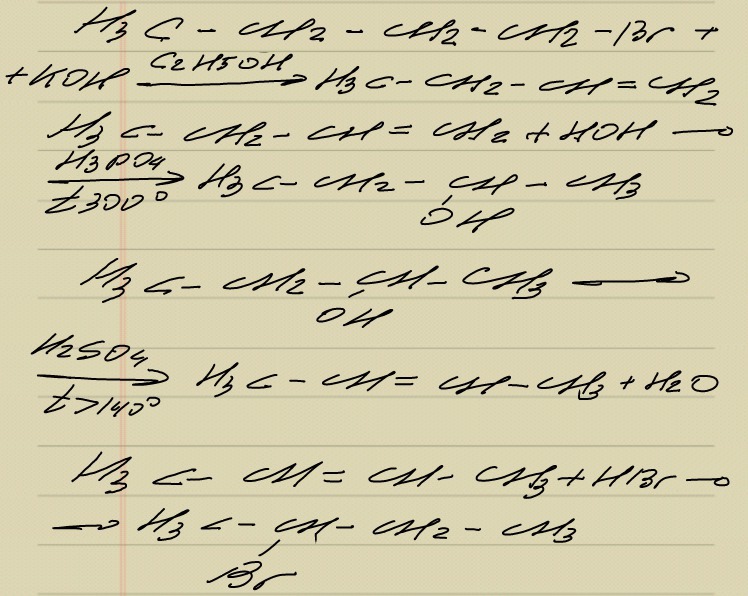 H3C - CH2 - CH2 - CH2 - Br +
+ KOH C2H5OH → H3C - CH2 - CH = CH2
H3C - CH2 - CH = CH2 + HOH →
H3PO4 → H3C - CH2 - CH - CH3
t 300° OH
H3C - CH2 - CH - CH3 →
OH
H2SO4 → H3C - CH = CH - CH3 + H2O
t > 140°
H3C - CH = CH - CH3 + HBr →
→ H3C - CH - CH2 - CH3
Br